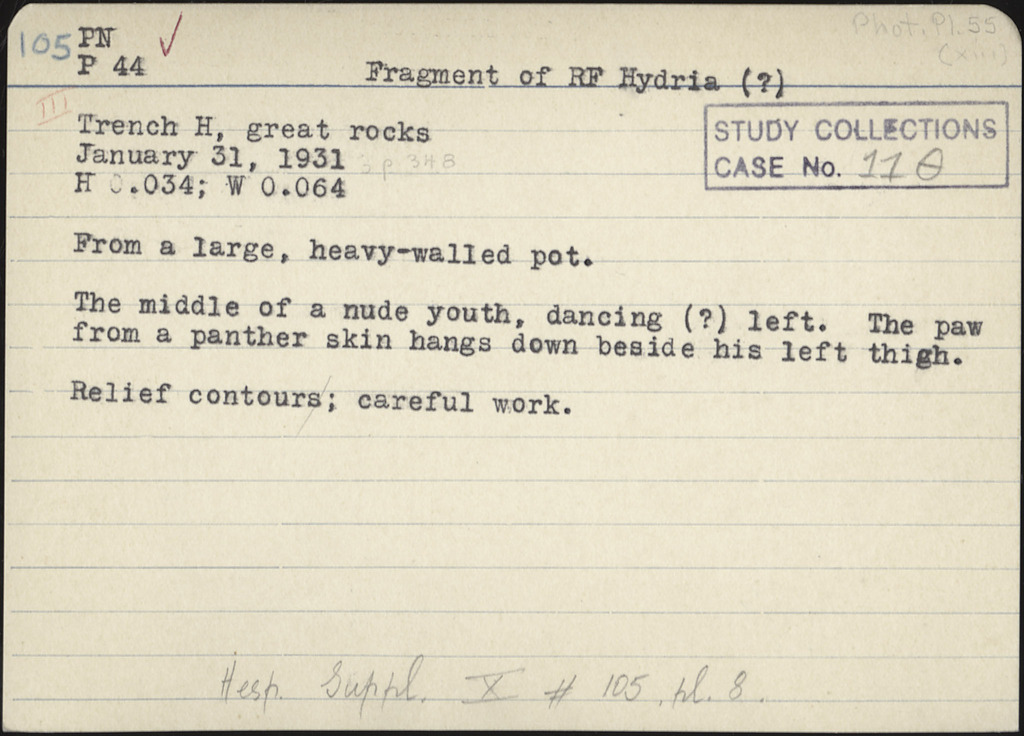 105 PN ✓
P 44
Phot. Pl. 55
(xiii)
Fragment of RF Hydria (?)
III
Trench H, great rocks
January 31, 1931 3 p 348
H 0.034; W 0.064
STUDY COLLECTIONS
CASE No. 110
From a large, heavy-walled pot.
The middle of a nude youth, dancing (?) left. The paw
from a panther skin hangs down beside his left thigh.
Relief contours; careful work.
Hesp. Suppl. X # 105, pl. 8.